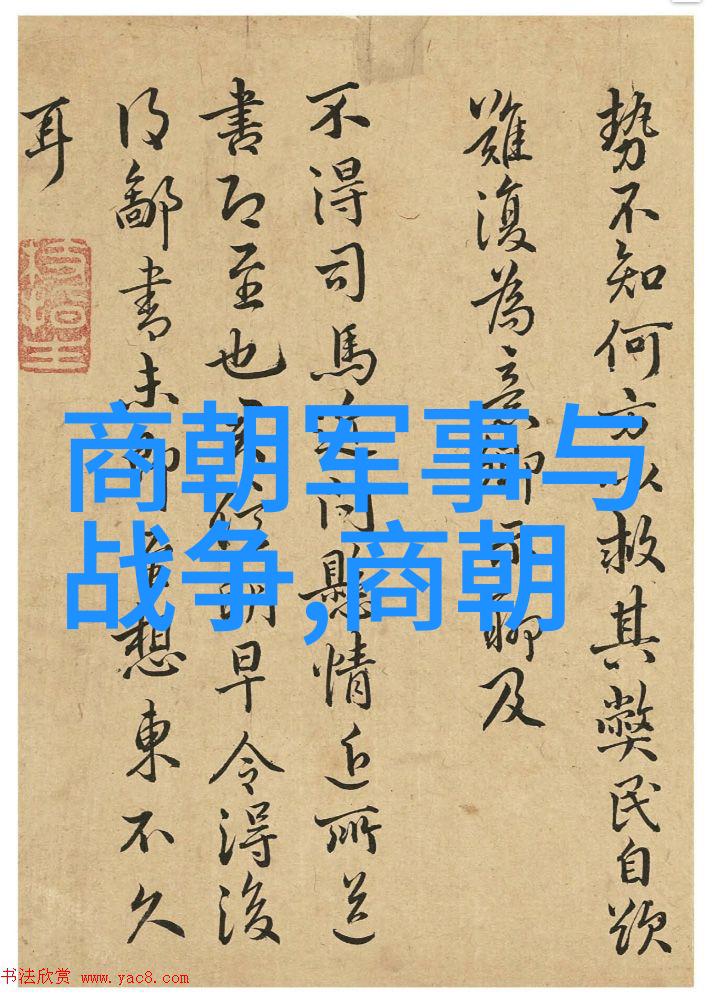 勢不知何方以救其弊民自
難復為意 聊及
不得司馬 問懸情近所送
書即至也 明早令得後
得鄙書未 想東不久
耳
商朝军事与
战争,商朝
书法欣赏 www.yac8.com